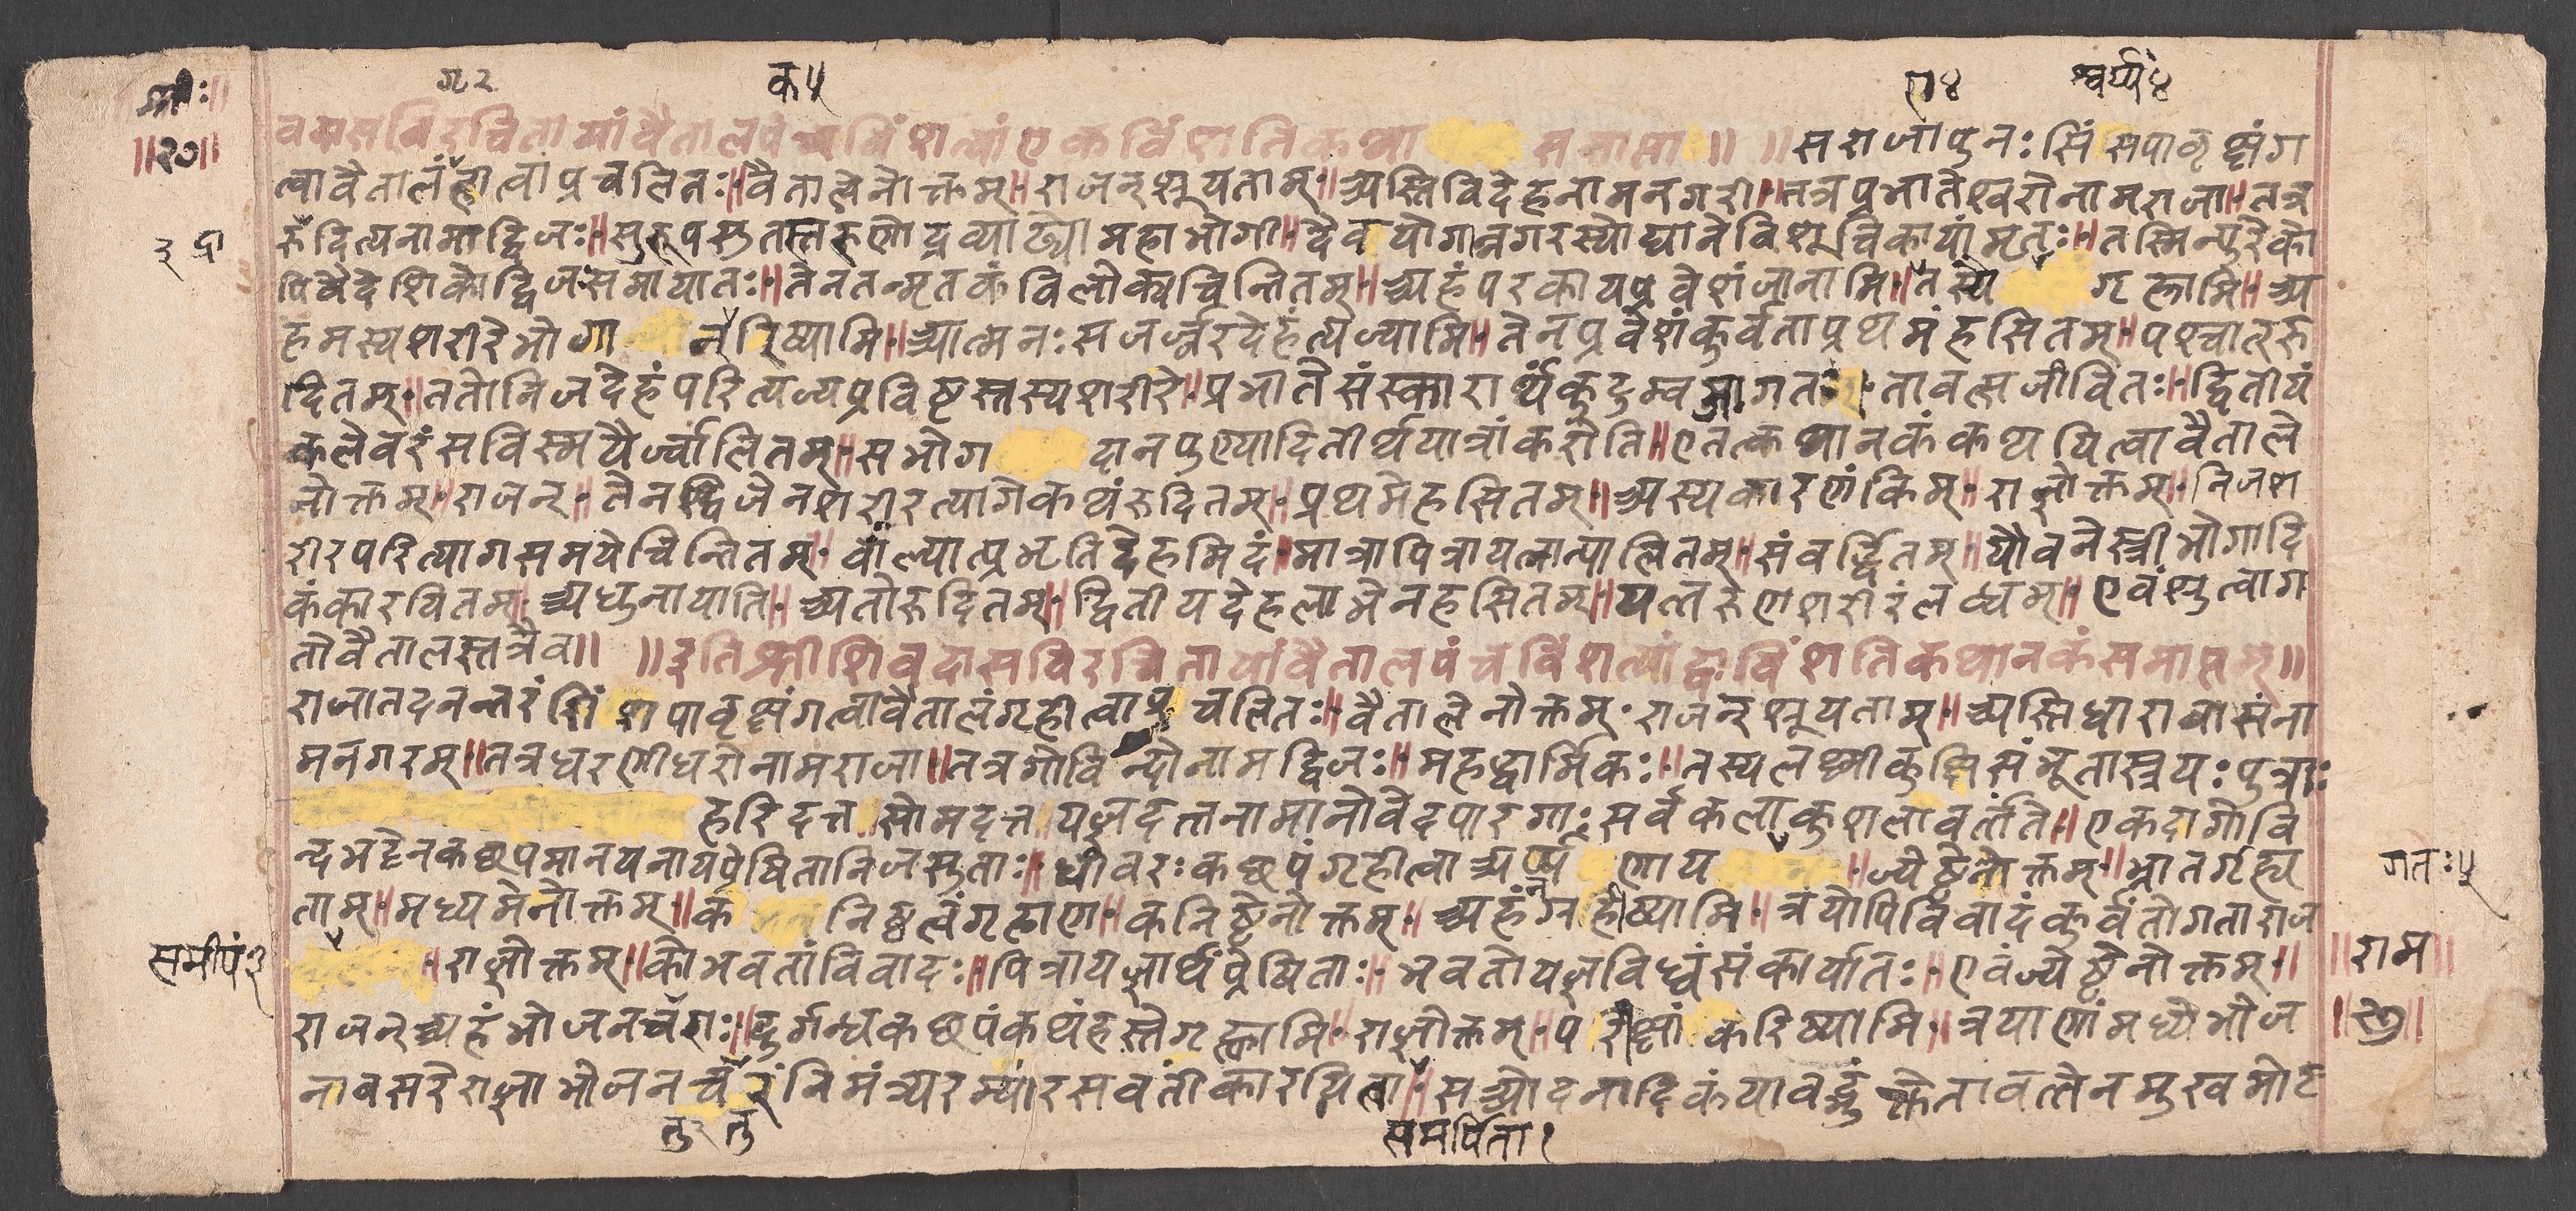 श्रीः॥ गृ२ क५ ए४ श्वर्य्य४
॥२०॥
वदासविरचितायां वैतालपंचविंशत्यां एकविंशतिकथा समाप्ता॥ ॥सराजापुनःसिंसपावृक्षंग
त्वावैतालंहीत्वाप्रचलितः॥वैतालेनोक्तम्॥राजन्श्रूयताम्॥अस्तिविदेहनामनगरी॥तत्रप्रभातेश्वरोनामराजा॥तत्र
३ द्रा
रुदित्यनामाद्विजः॥सुरूपसुतस्तरुणोद्रव्याढ्योमहाभोगी॥दैवयोगान्नगरस्योद्यानेविशूचिकायांमृतः॥तस्मिन्पुरेको
पिवैदेशिकोद्विजःसमायातः॥तेनतन्मृतकंविलोक्यचिन्तितम्॥अहंपरकायप्रवेशंजानामि॥तस्ये गृह्णामि॥अ
हमस्यशरीरेभोगा न्करिष्यामि॥आत्मनःसजर्ज्जरदेहंत्यज्यामि॥तेनप्रवेशंकुर्वताप्रथमंहसितम्॥पश्चात्रु
दितम्॥ततोनिजदेहंपरित्यज्यप्रविष्टस्तस्यशरीरे॥प्रभातेसंस्कारार्थंकुटुम्वमागतः॥तावत्सजीवितः॥द्वितीयं
कलेवरंसविस्मयैर्ज्वालितम्॥सभोग दानपुण्यादितीर्थयात्रांकरोति॥एतत्कथानकंकथयित्वावैताले
नोक्तम्॥राजन्॥तेनद्विजेनशरीरत्यागेकथंरुदितम्॥प्रथमेहसितम्॥अस्यकारणंकिम्॥राज्ञोक्तम्॥निजश
रीरपरित्यागसमयेचिन्तितम्॥वाल्यात्प्रभृतिदेहमिदं॥मात्रापित्रायत्नात्पालितम्॥संवर्द्धितम्॥यौवनेस्त्रीभोगादि
कंकारयितम्॥अधुनायाति॥अतोरुदितम्॥द्वितीयदेहलाभेनहसितम्॥यत्तरुणशरीरंलब्धम्॥एवंश्रुत्वाग
तोवैतालस्तत्रैव॥ ॥इतिश्रीशिवदासविरचितायांवैतालपंचविंशत्यांद्वाविंशतिकथानकंसमाप्तम्॥
राजातदनन्तरंशिंशपावृक्षंगत्वावैतालंगृहीत्वाप्रचलितः॥वैतालेनोक्तम्॥राजन्श्रूयताम्॥अस्तिधारावासंना
मनगरम्॥तत्रधरणीधरोनामराजा॥तत्रगोविन्दोनामद्विजः॥महद्धार्मिकः॥तस्यलक्ष्मीकुक्षिसंभूतास्त्रयःपुत्राः
हरिदत्त॥सोमदत्त॥यज्ञदत्तनामानोवेदपारगाःसर्वकलाकुशलावर्तते॥एकदागोवि
न्दभट्टेनकछपमानयनायप्रेषितानिजसुताः॥धीवरःकछपंगृहीत्वाअर्प्य णाय ॥ज्येष्ठेनोक्तम्॥भ्रातर्गृह्य
गतः५
ताम्॥मध्यमेनोक्तम्॥क निष्ठत्वंगृह्णाण॥कनिष्ठेनोक्तम्॥अहंनगृहीष्यामि॥त्रयोपिविवादंकुर्वंतोगताराज
समीपं३
॥राज्ञोक्तम्॥कोभवतांविवादः॥पित्रायज्ञार्थंप्रेषिताः॥भवतोयज्ञविध्वंसंकार्यातः॥एवंज्येष्ठेनोक्तम्॥
॥राम॥
राजन्अहंभोजनचंगः॥दुर्गन्धकछपंकथंहस्तेगृह्णामि॥राज्ञोक्तम्॥परीक्षांकरिष्यामि॥त्रयाणांमध्येभोज
नावसरेराज्ञाभोजनचंगंनिमंत्र्यरम्यांरसवतींकारयित्वा॥सओदनादिकंयावद्भुंक्तेतावत्तेनमुखमोट
तु२ तु समर्पिता१